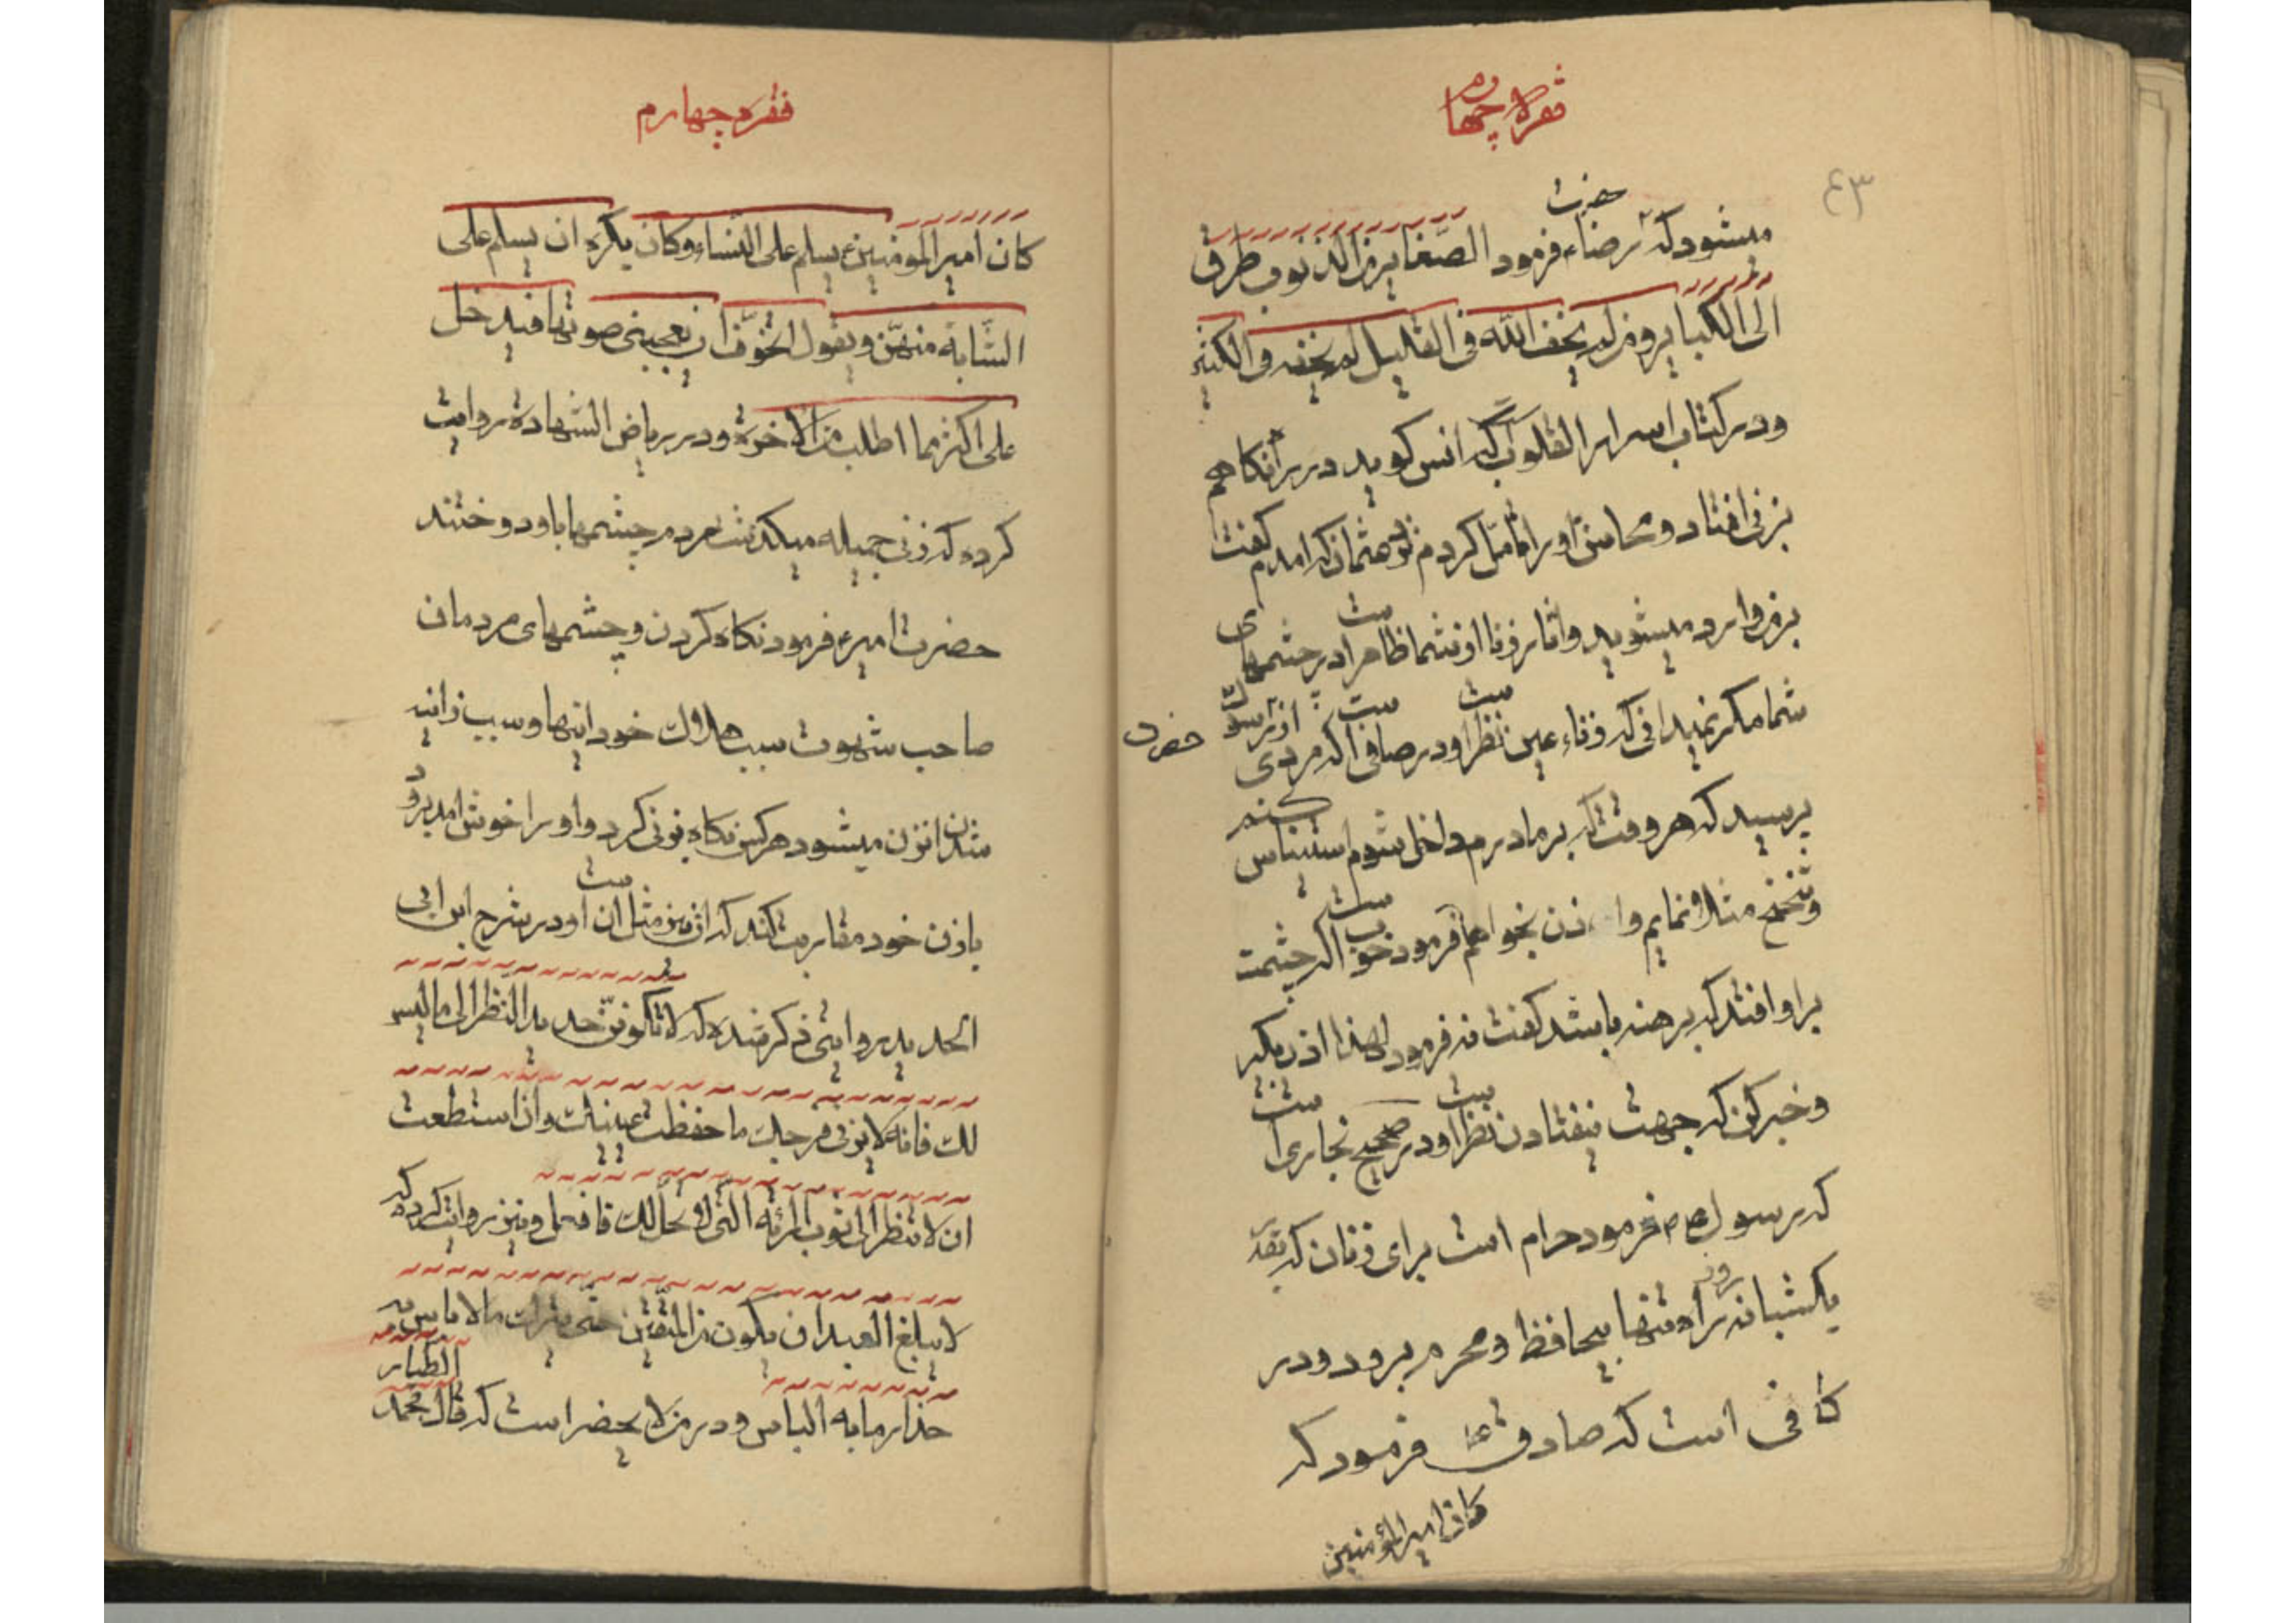 فقره چهارم
۴۳
میشود که حضرت رضاء فرمود الصغایر من الذنوب طرق
الی الکبایر و من لم یخف الله فی القلیل لم یخفه فی الکثیر
و در کتاب اسرار القلوب که انس کوید در راه نکاهم
بزنی افتاد و محاسن او را تامل کردم نزد عثمان که امدم کفت
بر من وارد میشوید و اثار زنا از شما ظاهر است در چشمهای
شما مکر نمیدانی که زناء عین نظر است و در صافی است که مردی از رسول
حضرت
پرسید که هر وقت که بر مادرم داخل شوم استیناس کنم
و تنحنح مثلا نمایم و اذن بخواهم فرمود خوب است اکر چشمت
براو افتد که برهنه باشد کفت نه فرمود لهذا اذن بکیر
و خبر کن که جهت نیفتادن نظر است و در صحیح بخاری است
که رسول ص م فرمود حرام است برای زنان که بقدر
یکشبانه روز راه تنها بیحافظ و محرم برود و در
کافی است که صادق ع فرمود که
کان امیر المؤمنین
فقره چهارم
کان امیر المومنین ع یسلم علی النساء و کان یکره ان یسلم علی
الشابة منهن و یقول اتخوف ان یعجبنی صوتها فیدخل
علی اکثر مما اطلب من الاخرة و در ریاض الشهادة روایت
کرده که زنی جمیله میکذشت مردم چشمها باو دوختند
حضرت امیر ع فرمود نکاه کردن و چشمهای مردمان
صاحب شهوت سبب هلاک خود انها و سبب زانیه
شدن انزن میشود هر کس نکاه بزنی کرد و او را خوش امد برود
بازن خود مقاربت کند که این نیز مثل ان است و در شرح ابن ابی
الحدید روایتی ذکر شده که لا تکونن حدید النظر الی ما لیس
لک فانه لا یزنی فرجک ما حفظت عینیک و ان استطعت
ان لا تنظر الی ثوب المرئه التی لا تحل لک فافعل و نیز روایت کرده که
لا یبلغ العبد ان یکون من المتقین حتی یترک ما لا باس به
حذار ما به الباس و در من لا یحضر است که قال محمد الطیار